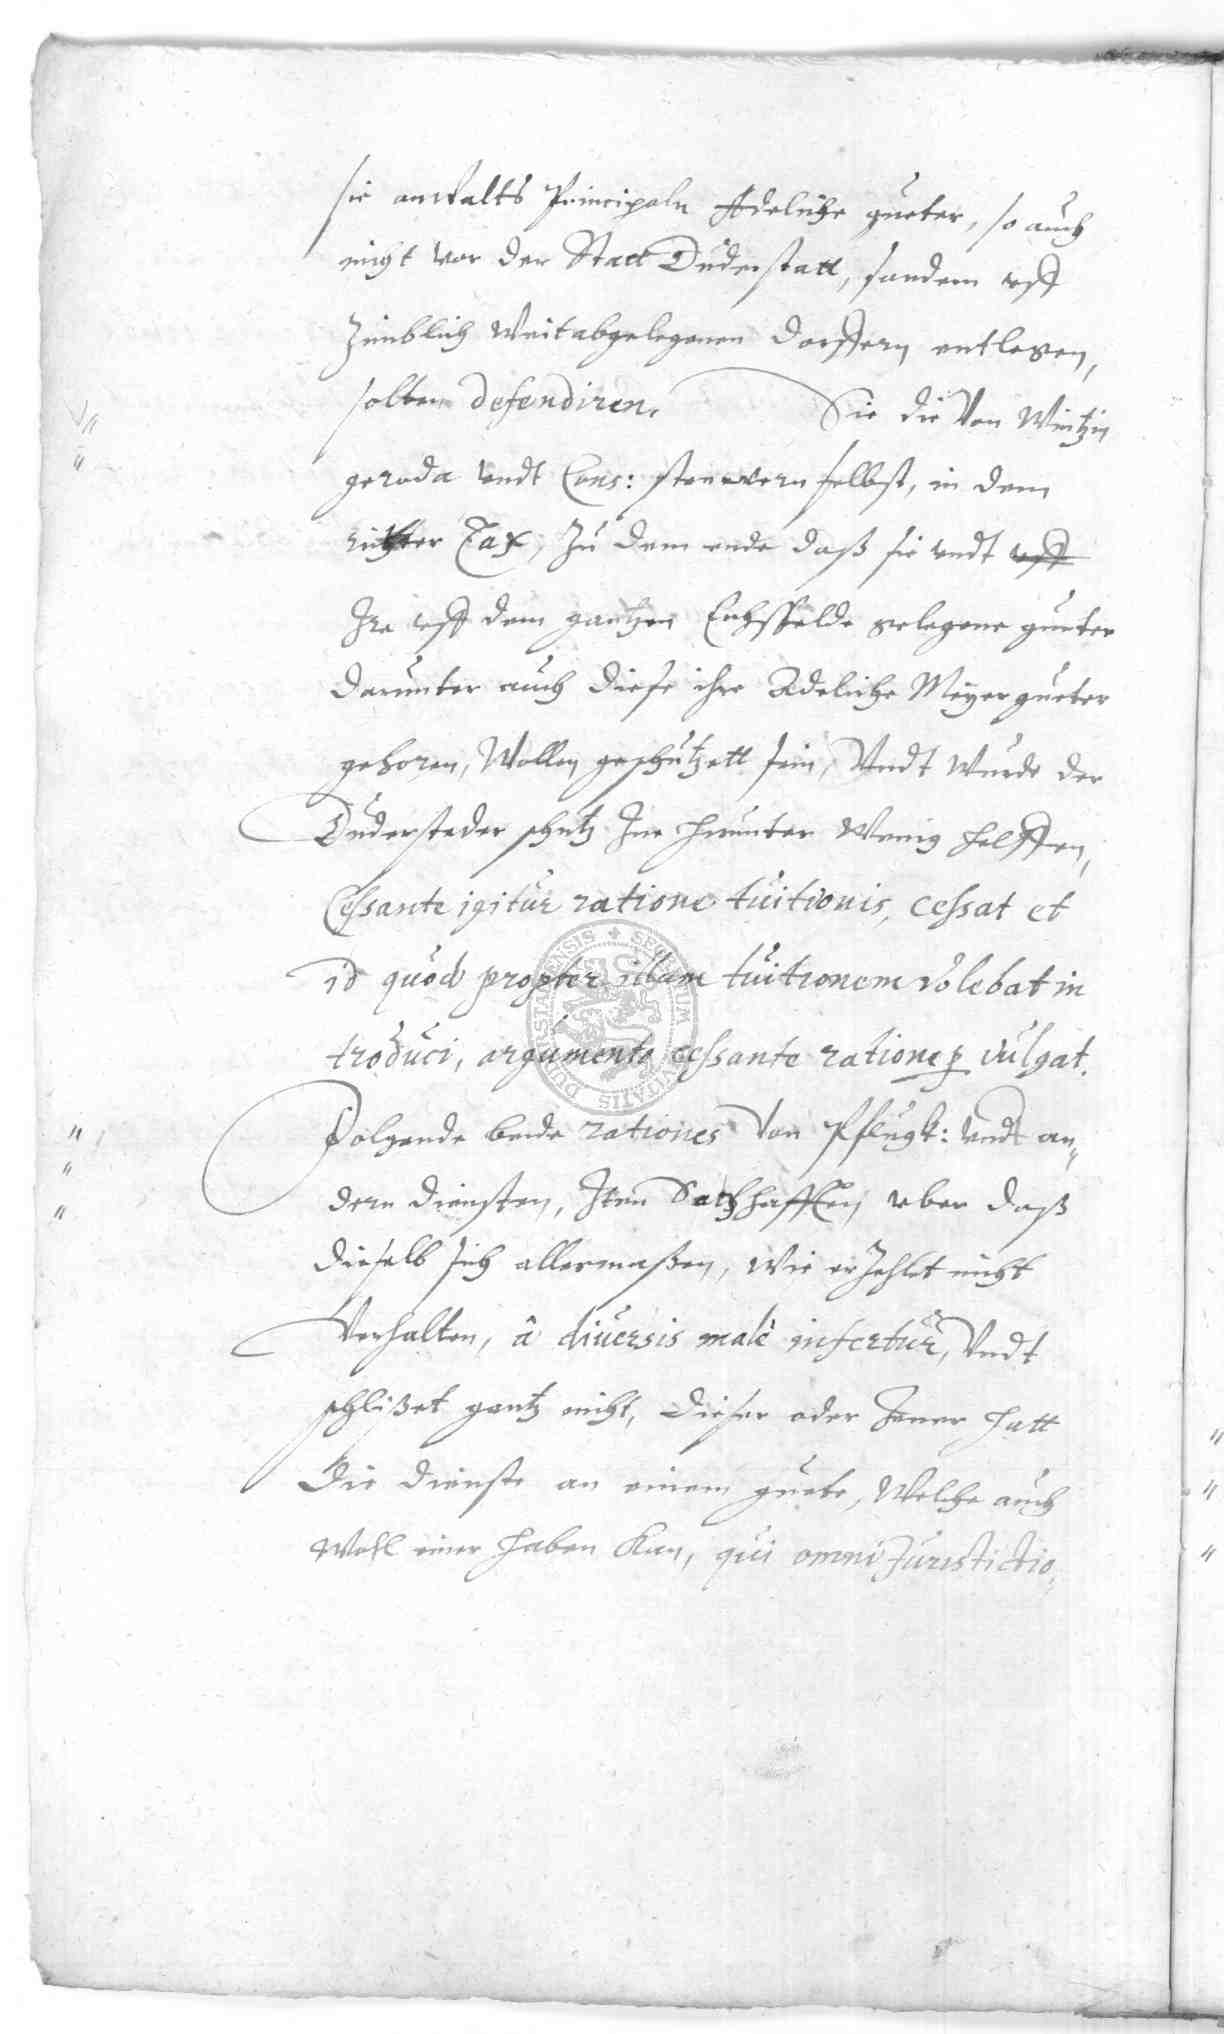 sie anwalts Principaln Adeliche gueter, so auch
nicht vor der Statt Duderstatt, sondern vff
zimblich weitabgelegenen dorffern entlegen,
solten defendiren. Sie die von Wintzin
geroda vndt Cons: stewern selbst, in dem
ritter Tax, zu dem ende daß sie vndt vff
Ire vff dem gantzen Eichsfelde gelegene gueter
darunter auch diese ihre Adeliche Meyergueter
gehoren, wollen geschutzett sein, Vndt wurde der
Dudersteder schutz Ine hierunter wenig helffen,
Cessante igitur ratione tuitionis, cessat et
id quod propter illam tuitionem volebat in
troduci, argumento cessante ratione p vulgat.
Folgende beide rationes von Pflugk: vndt an„
dern diensten, Item vber daß
dieselb sich allermaßen, wie erzehlet nicht
verhalten, â diuersis malè infertur, Vndt
schlißet gantz nicht, dieser oder Jener hatt
die dienste an einem guete, welche auch
wohl einer haben kan, qui omni Juristictio„
DUDERSTATENSIS SECRETUM CIVITATIS